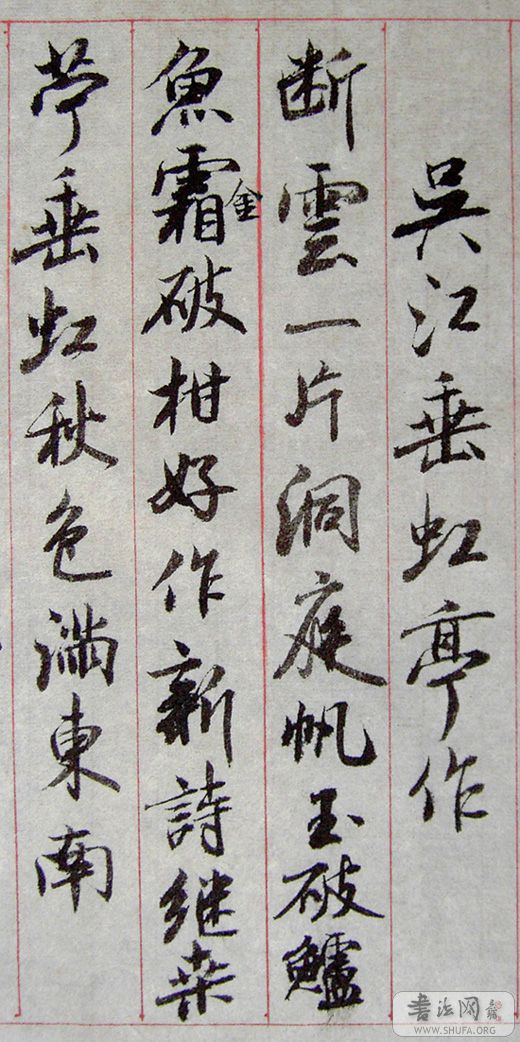 吳江垂虹亭作
断雲一片洞庭帆玉破鱸
魚霜金破柑好作新詩継桒
苧垂虹秋色満東南
书法网
WWW.SHUFA.ORG